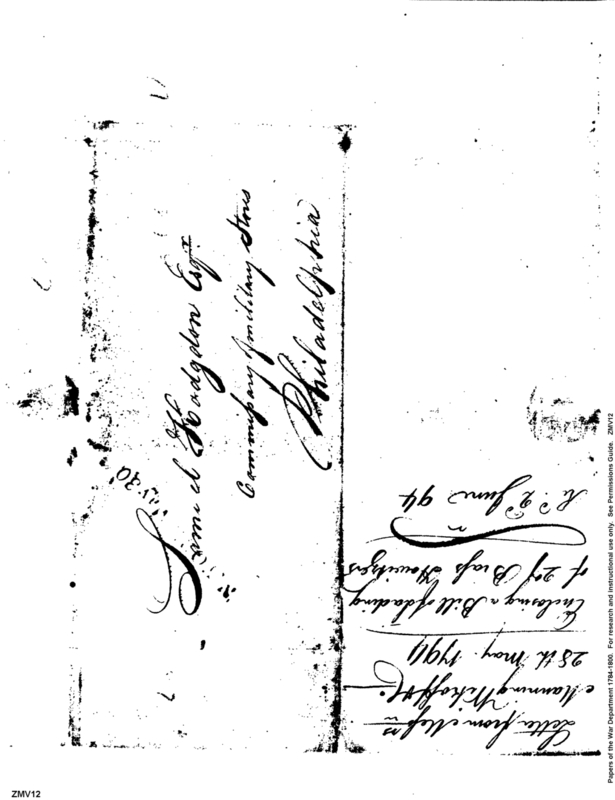 Samuel Hodgdon Esqr.
Commissary of military Stores
Philadelphia
Letter from Messrs
Manning Wikoff &
28th May. 1794
Enclosing a Bill of Lading
of 29 Brass Howitzers
Rd. 2d June 94
Papers of the War Department 1784-1800. For research and instructional use only. See Permissions Guide. ZMV12
ZMV12